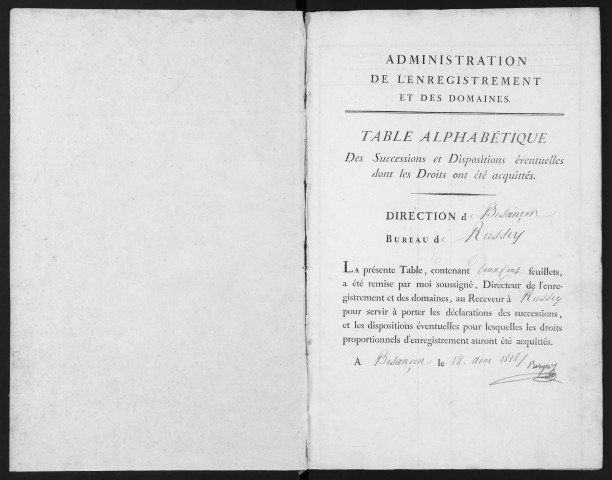 ADMINISTRATION
DE L'ENREGISTREMENT
ET DES DOMAINES.
TABLE ALPHABÉTIQUE
Des Successions et Dispositions éventuelles
dont les Droits ont été acquittés.
DIRECTION de Besançon
BUREAU de Russey
LA présente Table, contenant deux Cent feuillets,
a été remise par moi soussigné, Directeur de l'enre-
gistrement et des domaines, au Receveur à Russey
pour servir à porter les déclarations des successions,
et les dispositions éventuelles pour lesquelles les droits
proportionnels d'enregistrement auront été acquittés.
A Besançon le 12. 1818